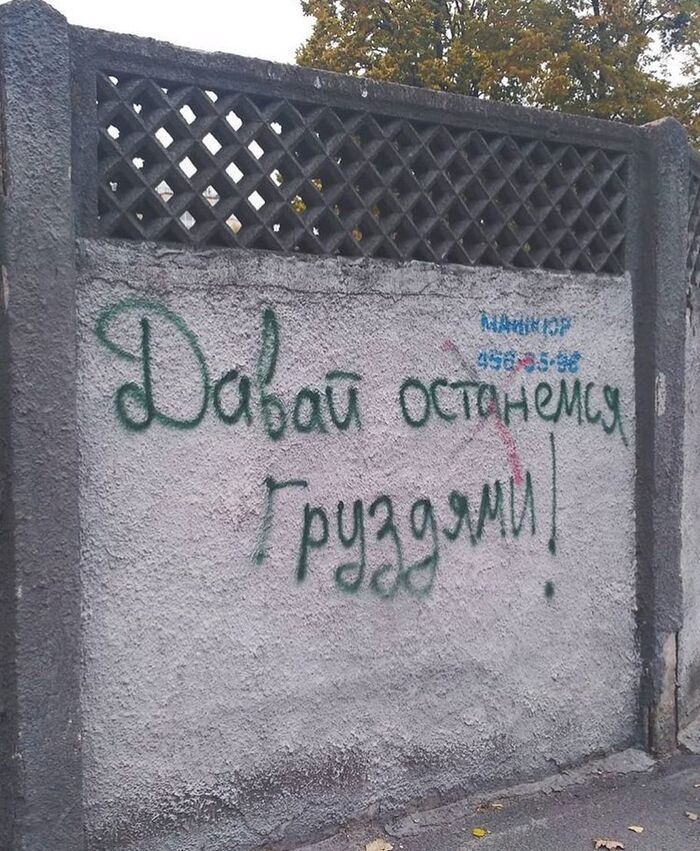 МАНИКЮР
Давай останемся
груздями!